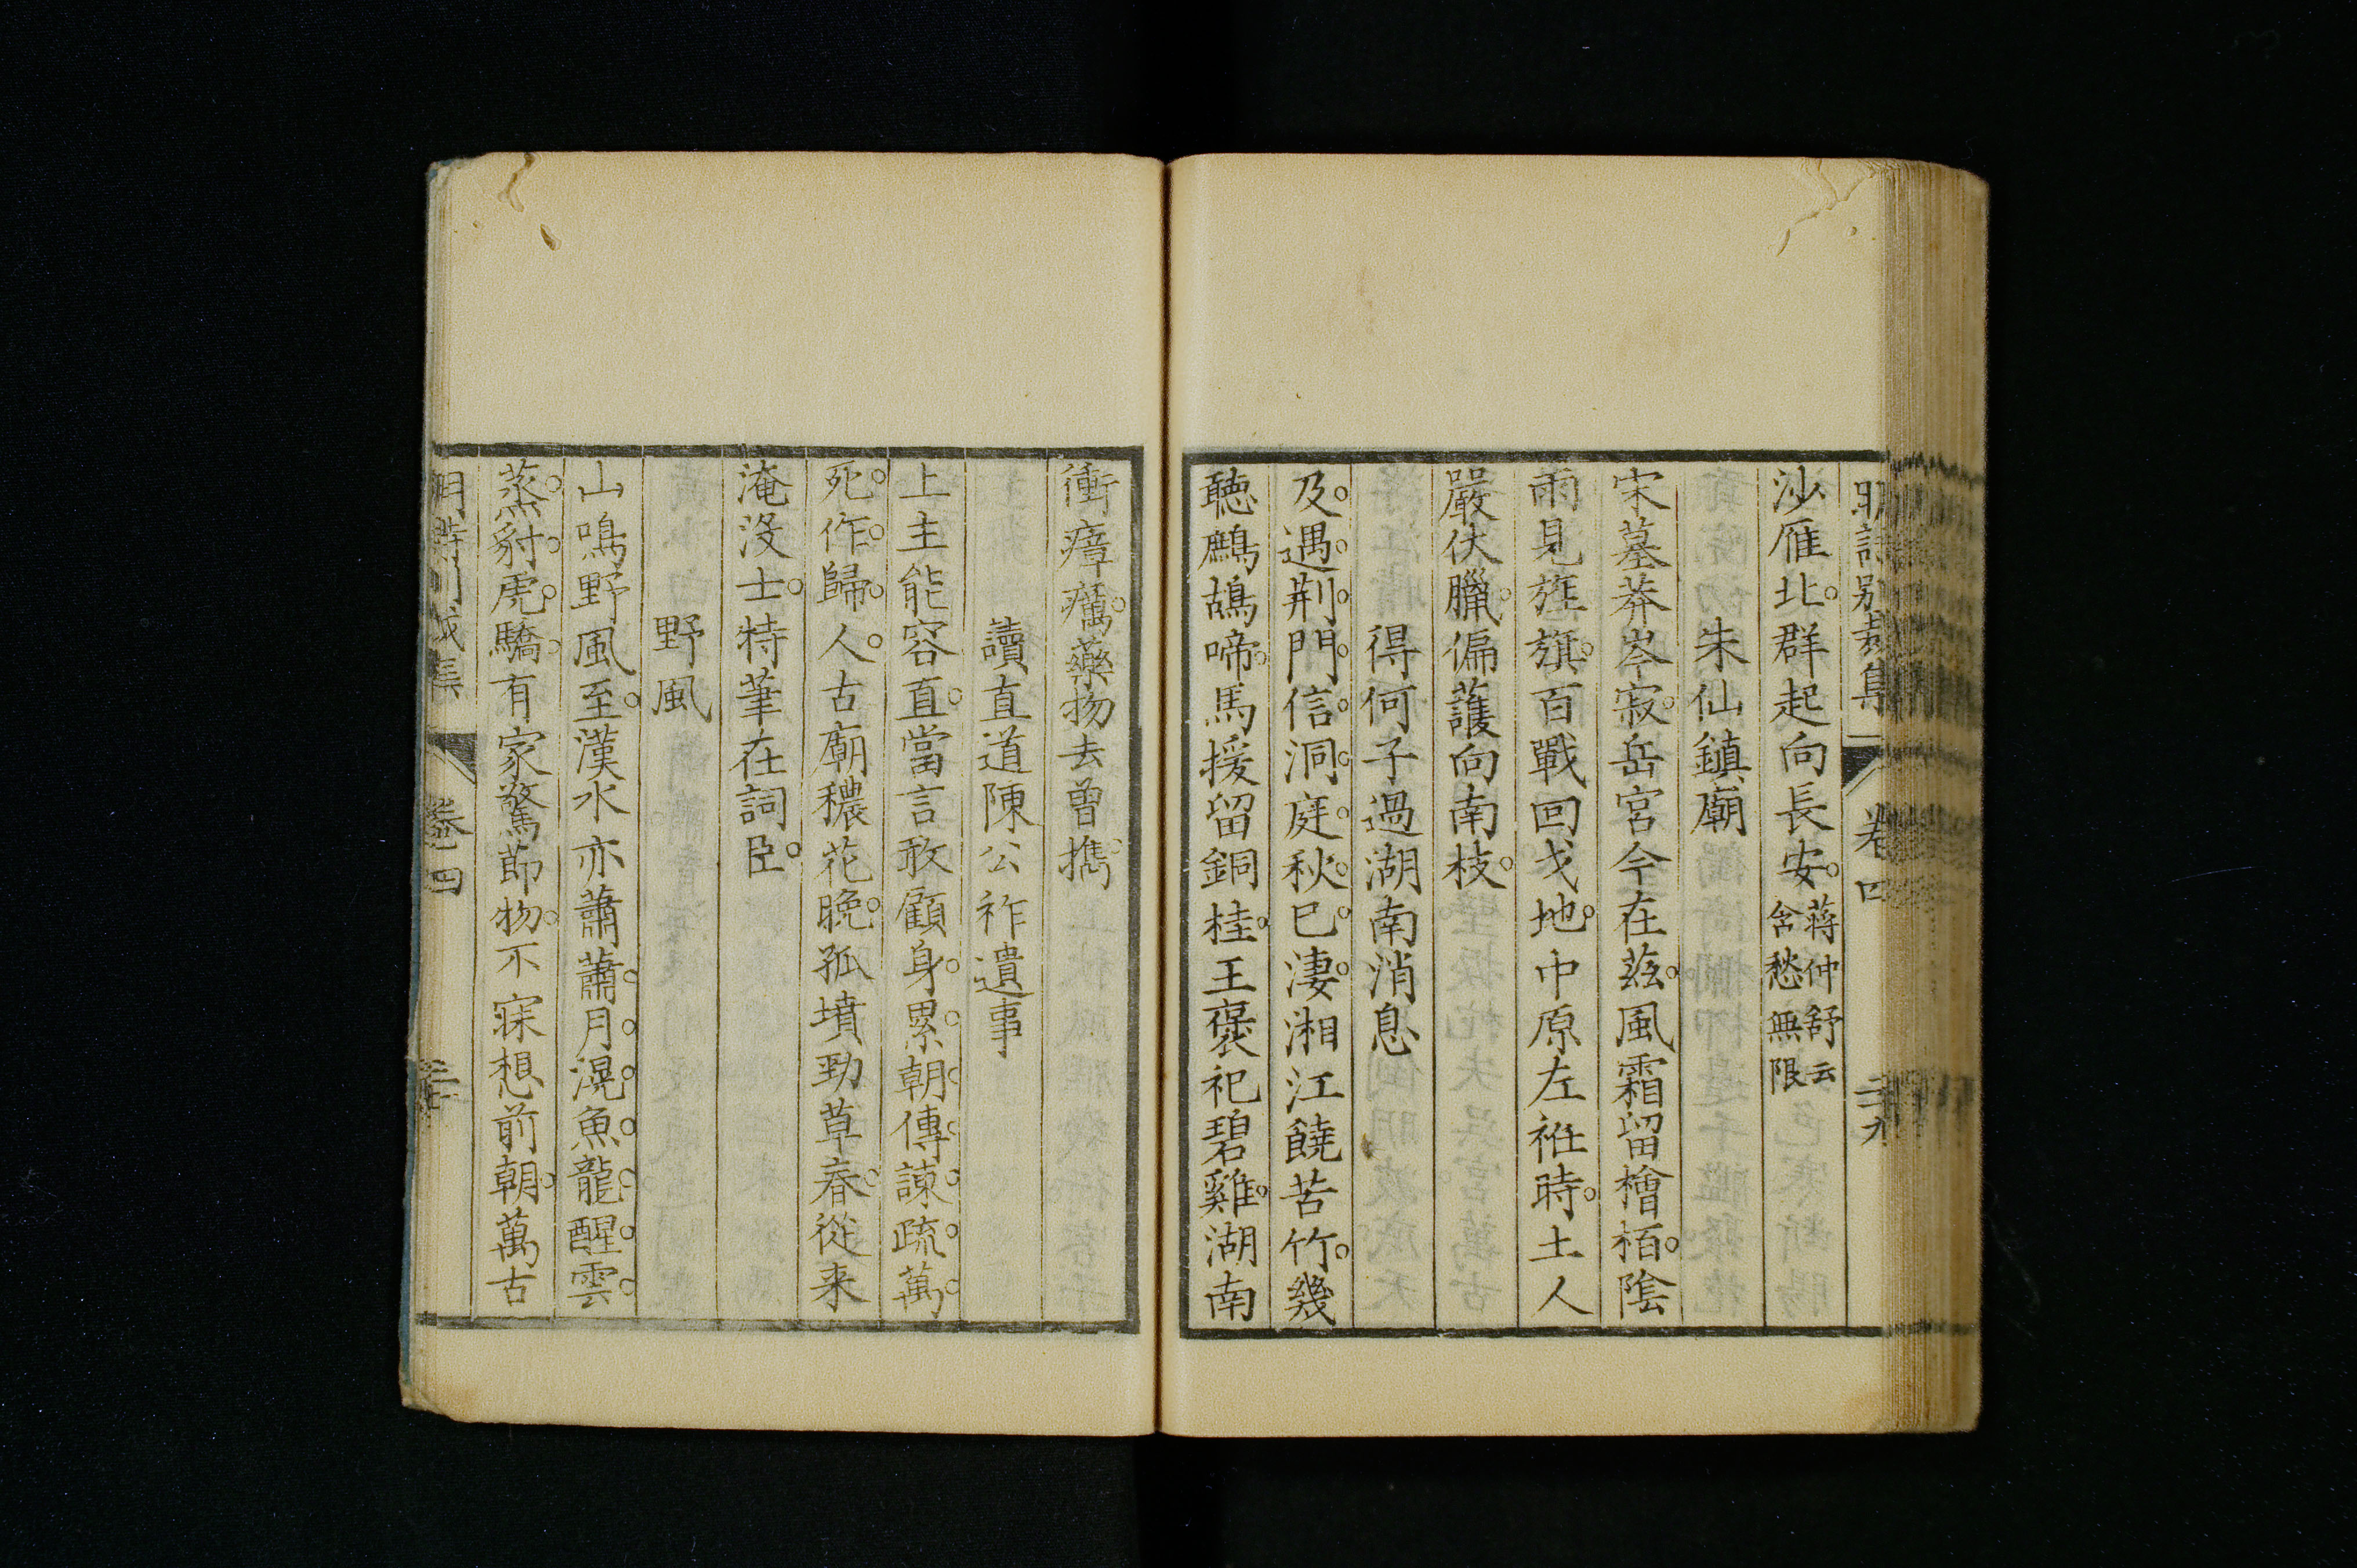 明詩別裁集 卷四
沙雁北群起向長安蔣仲舒云
含愁無限
朱仙鎮廟
宋墓莽岑寂岳宮今在茲風霜留檜栢陰
雨見旌旗百戰回戈地中原左衽時土人
嚴伏臘偏護向南枝
得何子過湖南消息
及遇荆門信洞庭秋已淒湘江饒苦竹幾
聽鷓鴣啼馬援留銅桂王褒祀碧雞湖南
衝瘴癘藥物去曾攜
讀直道陳公祚遺事
上主能容直當言敢顧身累朝傳諫疏萬
死作歸人古廟穠花晚孤墳勁草春從来
淹沒士特筆在詞臣
野風
山鳴野風至漢水亦蕭蕭月滉魚龍醒雲
蒸豺虎驕有家驚節物不寐想前朝萬古
明詩別裁集 卷四